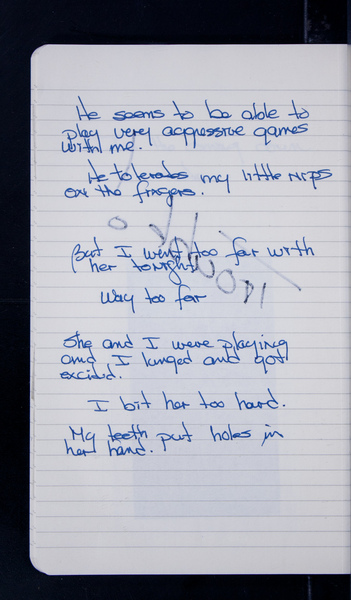 He seems to be able to
play very aggressive games
with me.
He tolerates my little nips
on the fingers.
But I went too far with
her tonight
Way too far
She and I were playing
and I lunged and got
excited.
I bit her too hard.
My teeth put holes in
her hand.